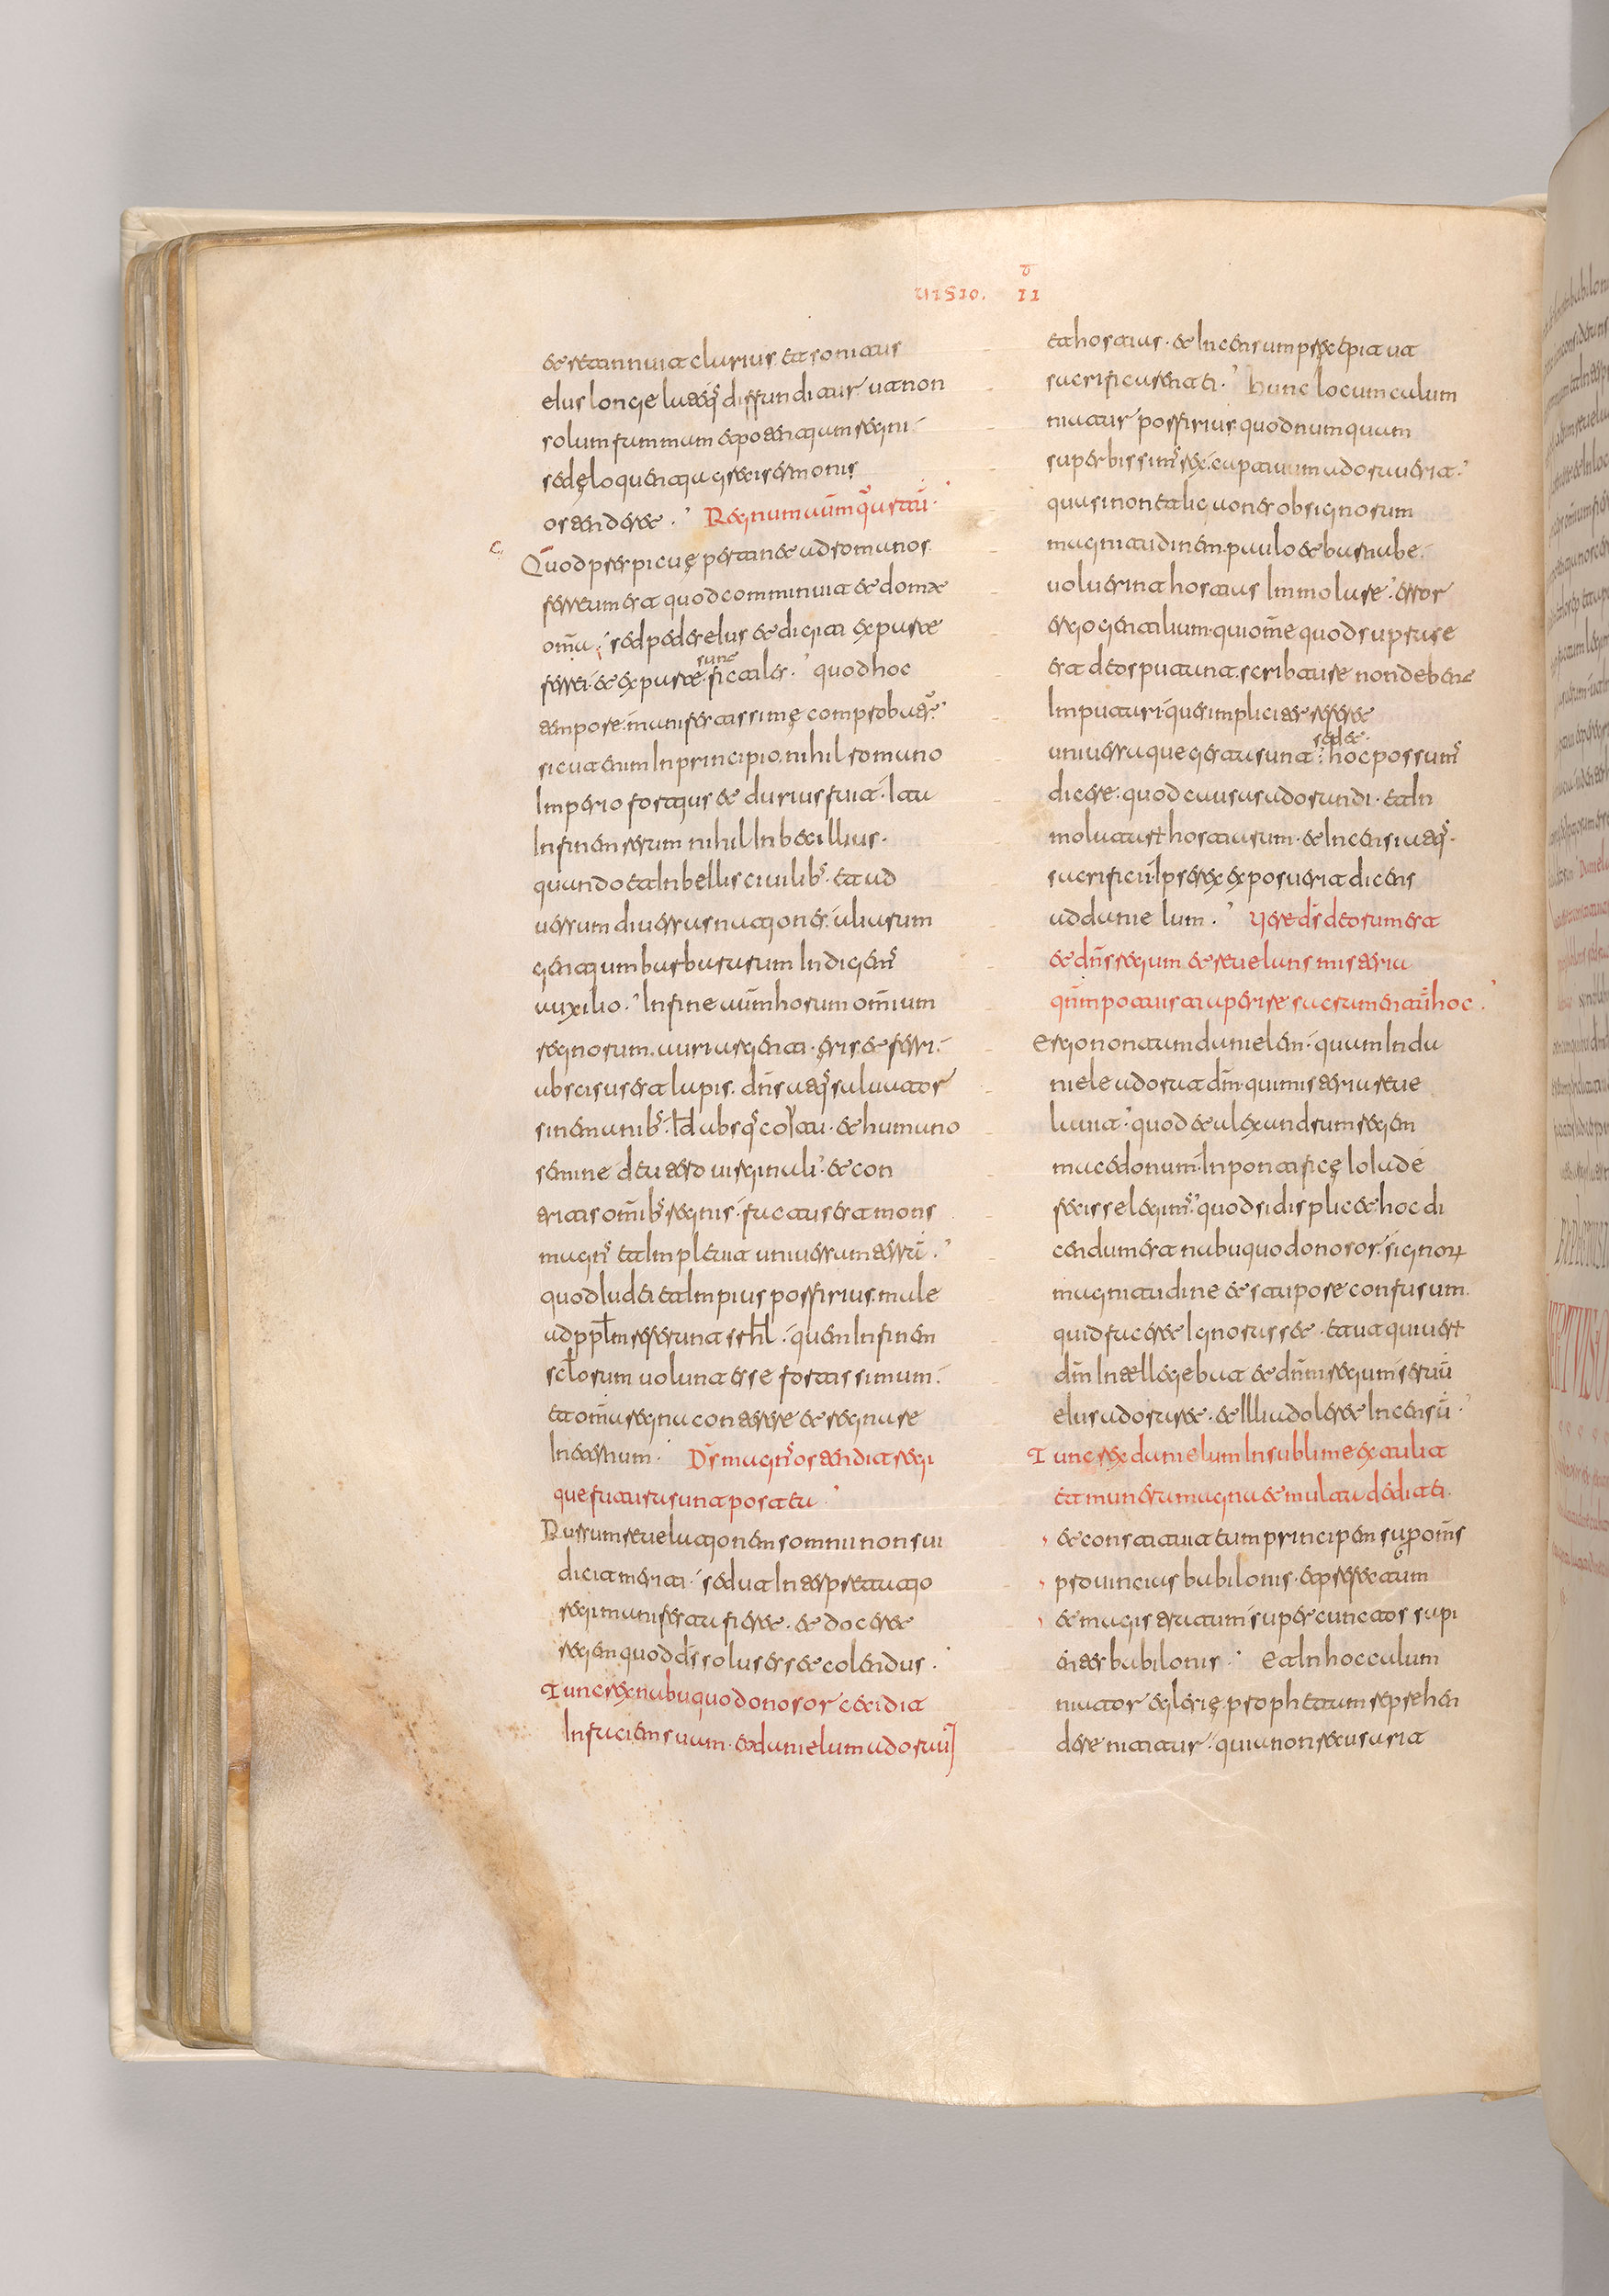 UISIO. II
et retinnuit clarius et sonitus
eius longe lateq; diffunditur ut non
solum famam et potentiam regni
sed ęloquentia greci sermonis
ostenderet. Regnum autm quartū
Quod perspicuę pertinet ad romanos
ferrum est quod comminuit et domat
omīa sed pedes eius et digiti ex parte
ferrei et ex parte sunt fictiles. quod hoc
tempore manifestissimę comprobat͛
sicut enim in principio nihil romano
imperio fortius et durius fuit. ita
in finem rerum nihil inbecillius.
quando et in bellis ciuilib; et ad
uersum diuersas nationes aliarum
gentium barbararum indigem;
auxilio. In fine autm horum omnium
regnorum. auri argenti. ęris et ferri.
abscisus est lapis. dns atq; saluator
sine manib; id absq; coitu. et humano
semine de utero uirginali. et con
tritis omīb; regnis. factus est mons
magn; et impleuit uniuersam terrā.
quod iudei et impius porfirius male
ad pplm referunt srhl. quem in finem
sclorum uolunt esse fortissimum.
et omīa regna conterere et regnare
in eternum. Ds magn; ostendit regi
que futura sunt postea.
Rursum reuelationem somnii non sui
dicit meriti. sed ut interpretatio
regi manifesta fieret. et doceret
regem quod ds solus esset colendus.
Tunc rex nabuquodonosor cecidit
in faciem suam. et danielum adorauit
et hostias. et incensum precepit ut
sacrificarent ei. hunc locum calum
niatur porfirius. quod numquam
superbissim; rex. captiuum adorauerit.
quasi non et licaones ob signorum
magnitudinem. paulo et barnabe.
uoluerint hostias immolare. error
ergo gentilium. qui omne quod supra se
est deos putant. scripture non debere
imputari. que simpliciter referre
uniuersa que gesta sunt. sed et hoc possum;
dicere. quod causas adorandi. et in
molatur hostiarum. et incensi atq;
sacrificii ipse rex exposuerit dicens
ad danielum. Uere ds deorum est
et dns regum et reuelans misteria
qnm potuisti aperire sacramentū hoc.
Ergo non tam danielem. quam in da
niele adorat dm. qui misteria reue
lauit. quod et alexandrum regem
macedonum. in pontificę ioiade
fecisse legim; quod si displicet. hoc di
cendum est nabuquodonosor. signor
magnitudine et stupore confusum.
quid faceret ignorasse. et ut qui uer
dm intellegebat et dnm regum. seruū
eius adoraret. et illi adoleret incensū.
Tunc rex danielum in sublime extulit
et munera magna et multa dedit ei.
et constituit eum principem sup omīs
prouincias babilonis. et prefectum
et magistratum super cunctos sapi
entes babilonis. et in hoc calum
niator eclesię. prophetam reprehen
dere nititur. quia non recusarit